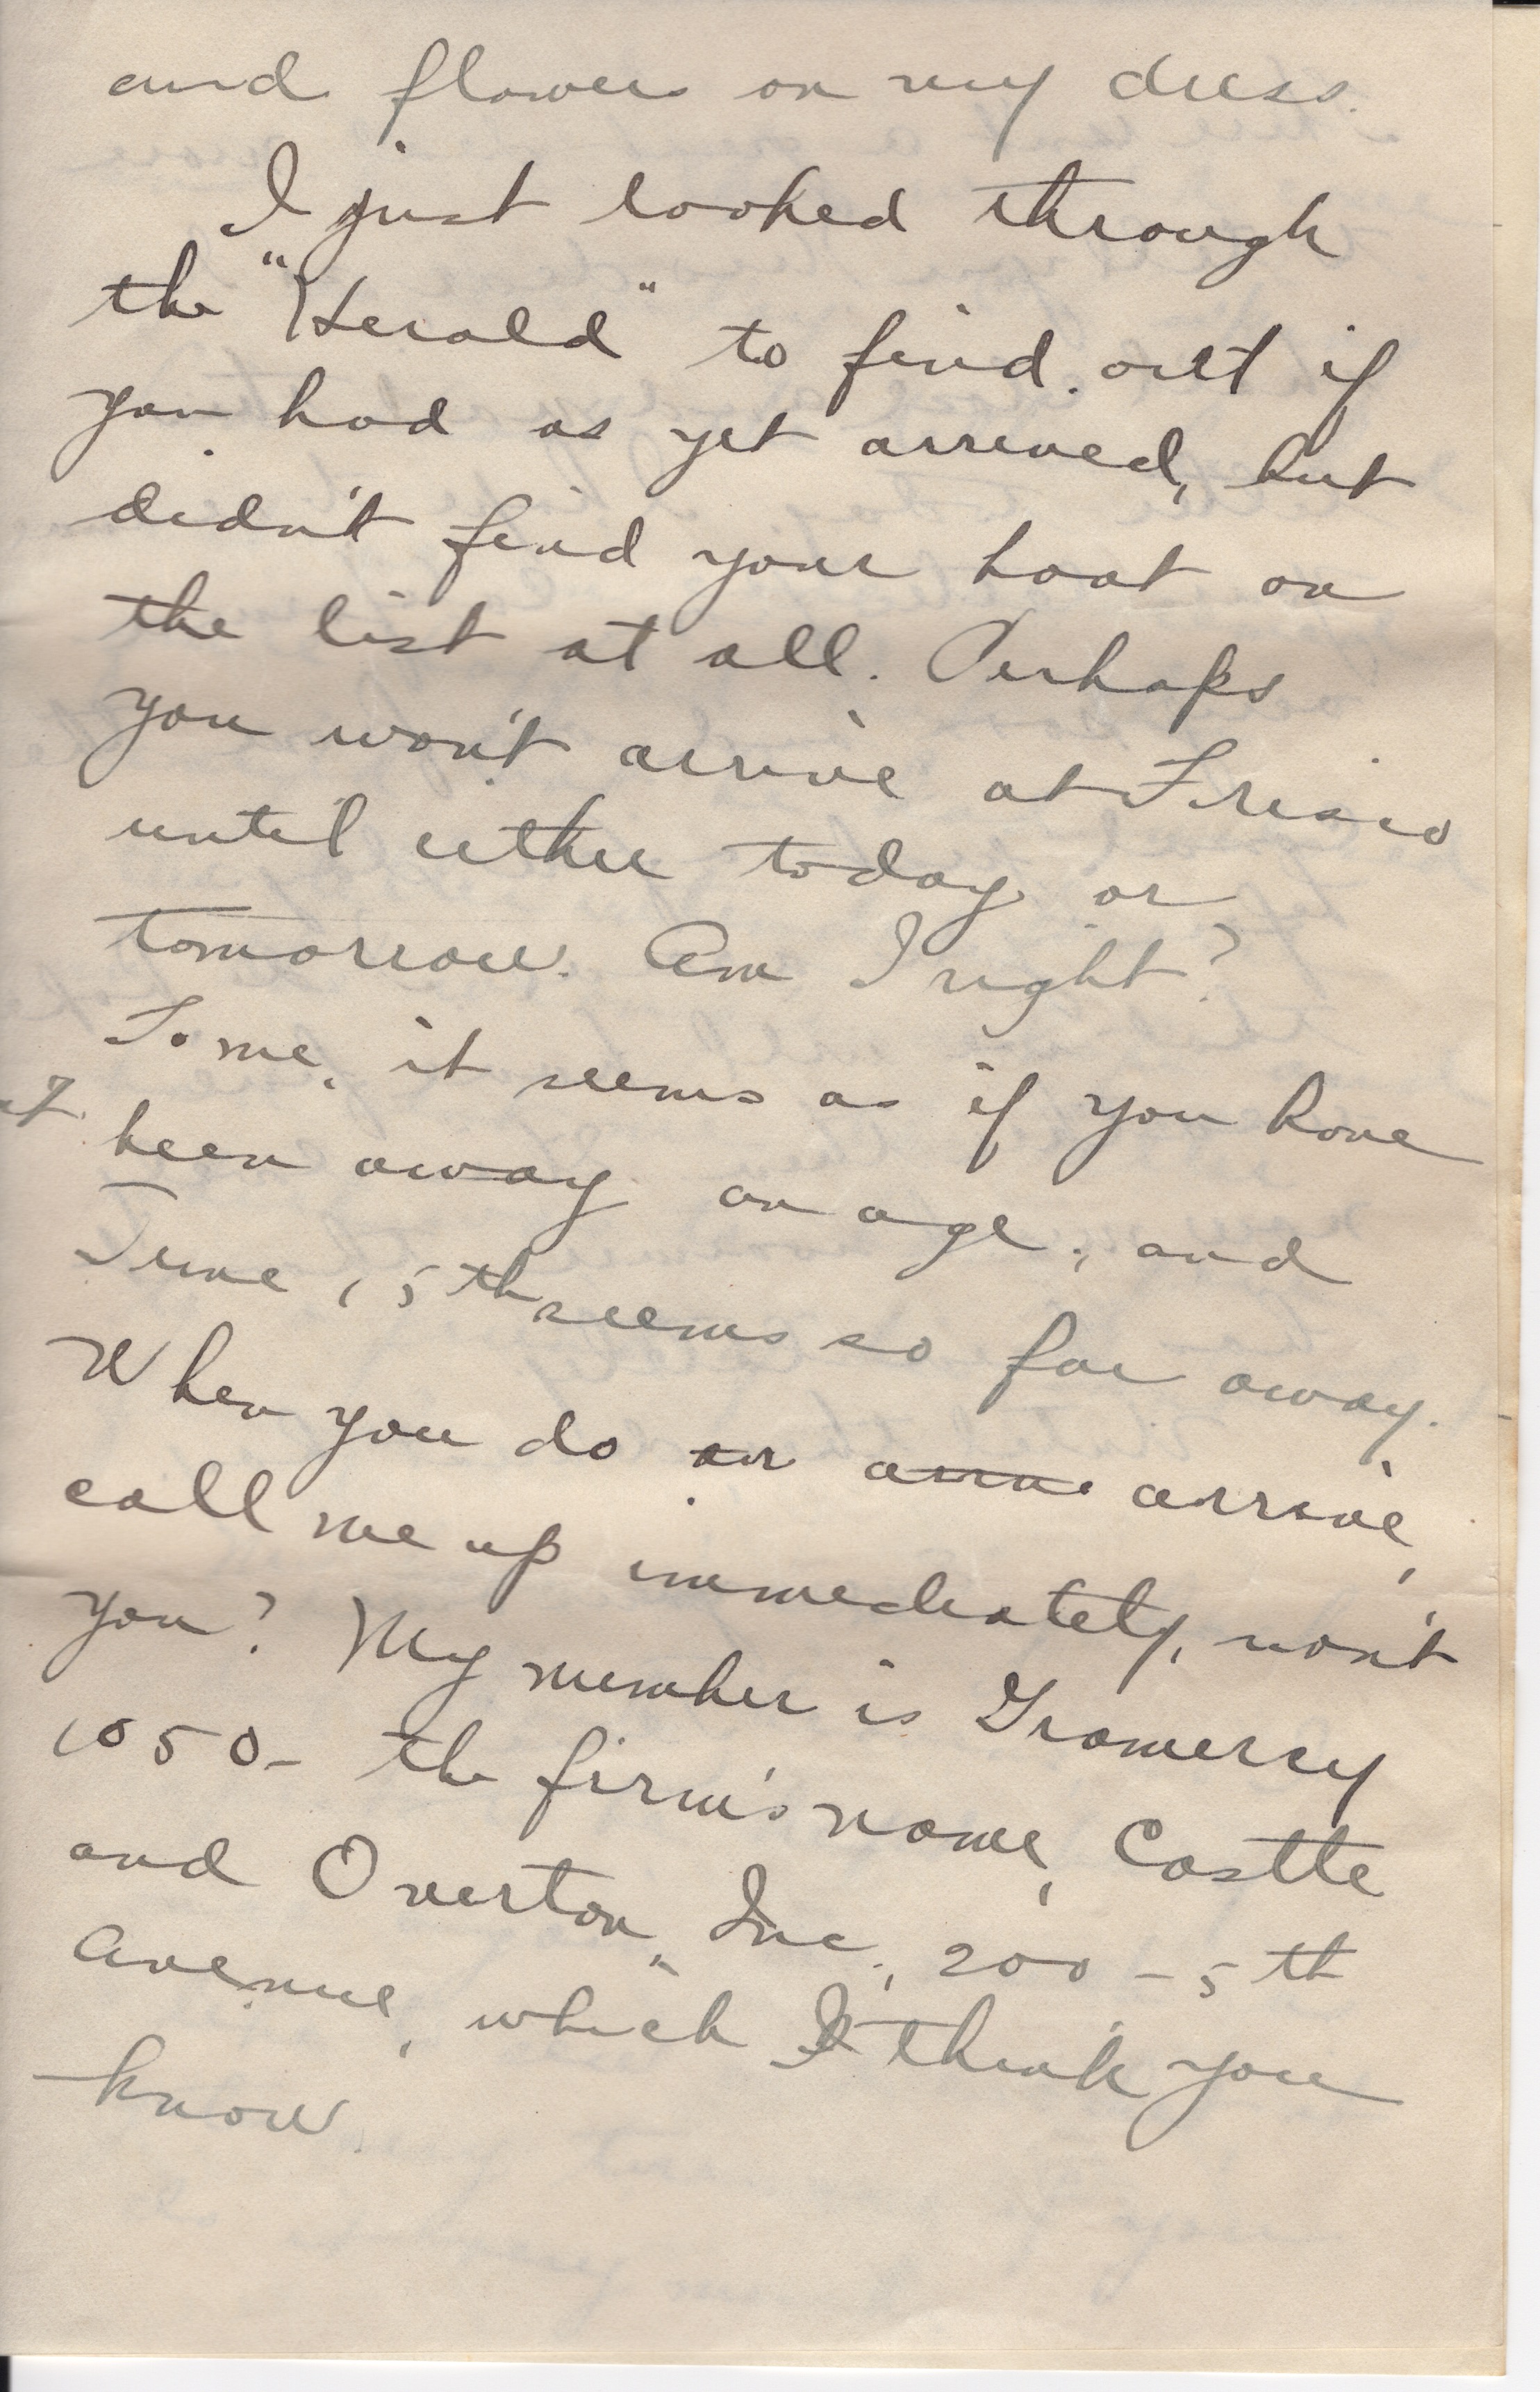 and flowers on my dress.
I just looked through
the "Herald" to find out if
you had as yet arrived, but
didn't find your boat on
the list at all. Perhaps
you won't arrive at Frisco
until either today or
tomorrow. Am I right?
To me, it seems as if you have
been away an age, and
June 15th seems so far away.
When you do ar arrive arrive,
call me up immediately, won't
you? My member is Gramercy
1050 - the firm's name, Castle
and Overton, Inc., 200 - 5th
Avenue, which I think you
know.